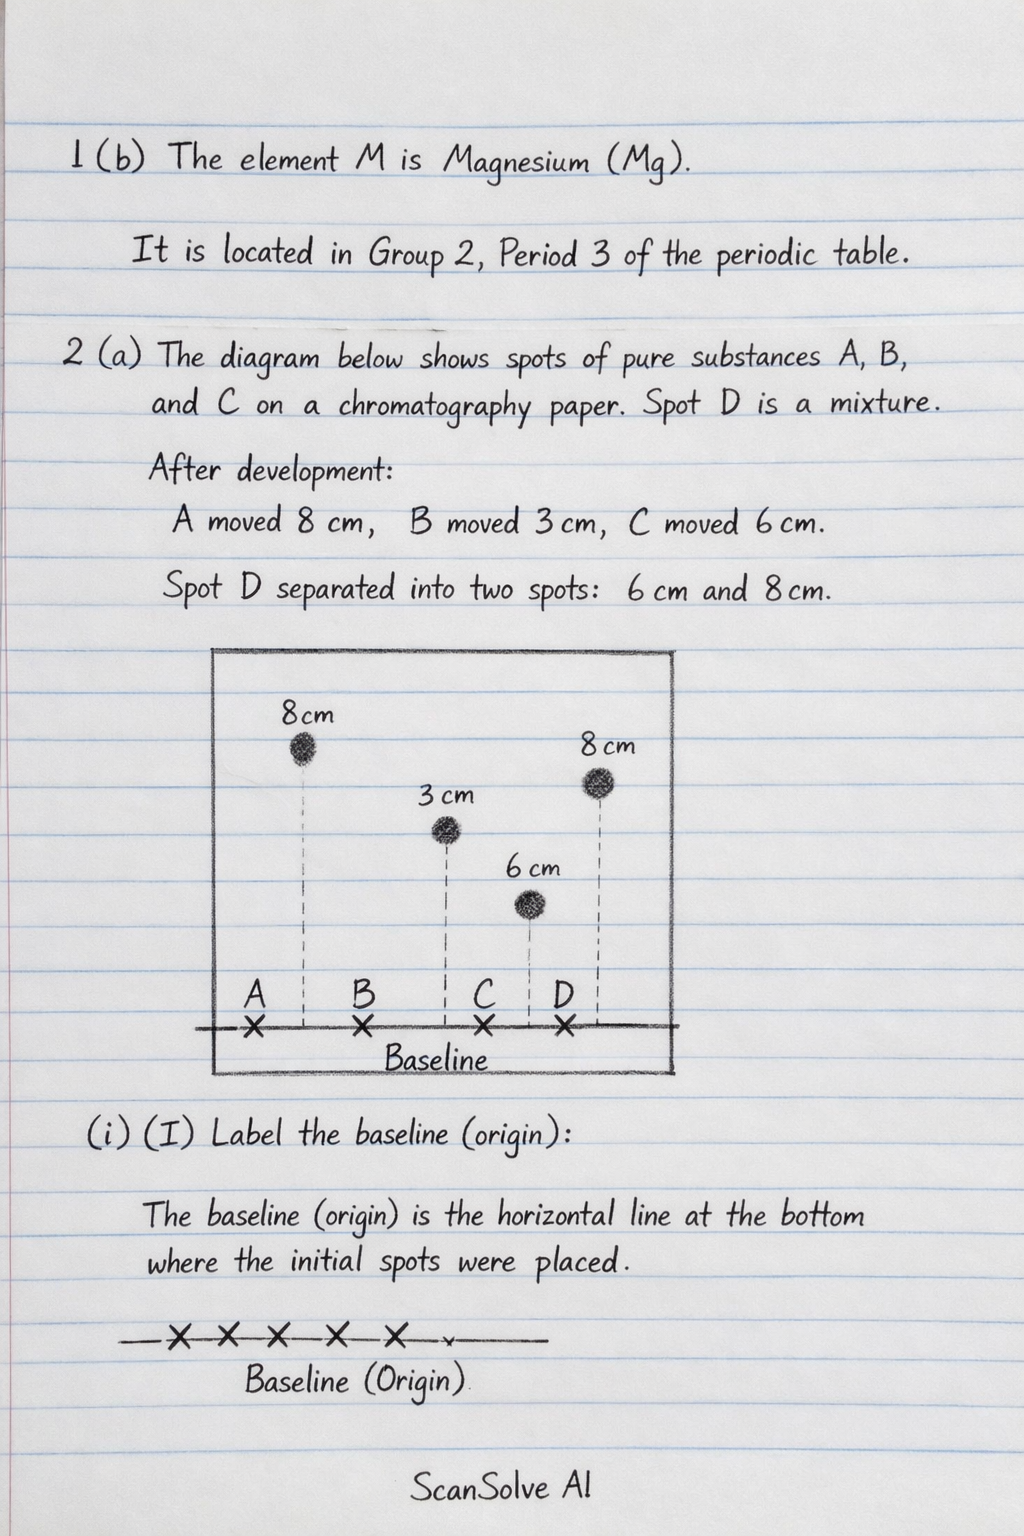 1 (b) The element M is Magnesium (Mg).
It is located in Group 2, Period 3 of the periodic table.
2 (a) The diagram below shows spots of pure substances A, B,
and C on a chromatography paper. Spot D is a mixture.
After development:
A moved 8 cm, B moved 3 cm, C moved 6 cm.
Spot D separated into two spots: 6 cm and 8 cm.
8 cm
8 cm
3 cm
6 cm
A B C D
Baseline
(i) (I) Label the baseline (origin):
The baseline (origin) is the horizontal line at the bottom
where the initial spots were placed.
Baseline (Origin)
ScanSolve AI